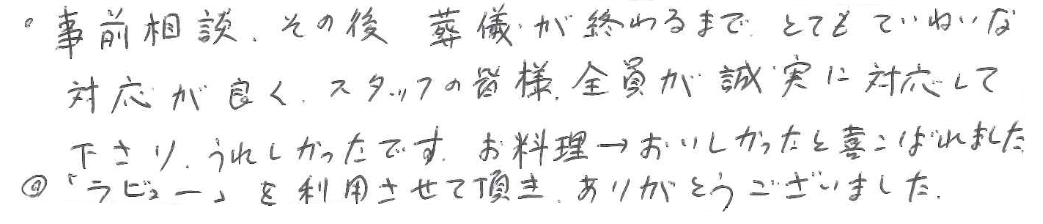 ・事前相談、その後 葬儀が終わるまで、とてもていねいな
対応が良く、スタッフの皆様、全員が誠実に対応して
下さり、うれしかったです。お料理→おいしかったと喜こばれました
◎「ラビュー」を利用させて頂き、ありがとうございました。